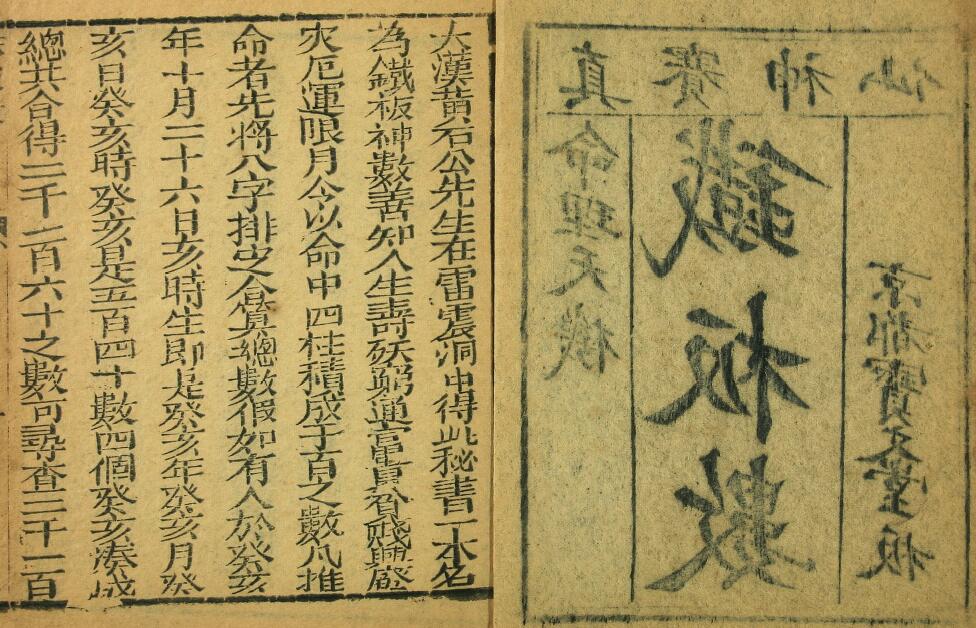 真賽神仙
命理天機
鐵板數
京都寶文堂板
大漢黃石公先生在雷震洞中得此秘書一本名
為鐵板神數善知人生壽殀窮通富貴貧賤興廢
灾厄運限月令以命中四柱積成千百之數凡推
命者先將八字排定總數假如有人於癸亥
年十月二十六日亥時生即是癸亥年癸亥月癸
亥日癸亥時癸亥是五百四十數四個癸亥湊成
總共合得二千一百六十之數可尋查二千一百